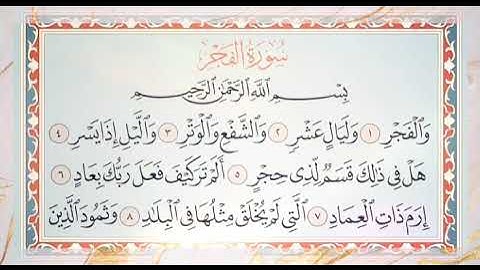 سُورَةُ الفَجْرِ
بِسْمِ اللَّهِ الرَّحْمَٰنِ الرَّحِيمِ
وَالْفَجْرِ ١ وَلَيَالٍ عَشْرٍ ٢ وَالشَّفْعِ وَالْوَتْرِ ٣ وَاللَّيْلِ إِذَا يَسْرِ ٤
هَلْ فِي ذَٰلِكَ قَسَمٌ لِّذِي حِجْرٍ ٥ أَلَمْ تَرَ كَيْفَ فَعَلَ رَبُّكَ بِعَادٍ ٦
إِرَمَ ذَاتِ الْعِمَادِ ٧ الَّتِي لَمْ يُخْلَقْ مِثْلُهَا فِي الْبِلَادِ ٨ وَثَمُودَ الَّذِينَ